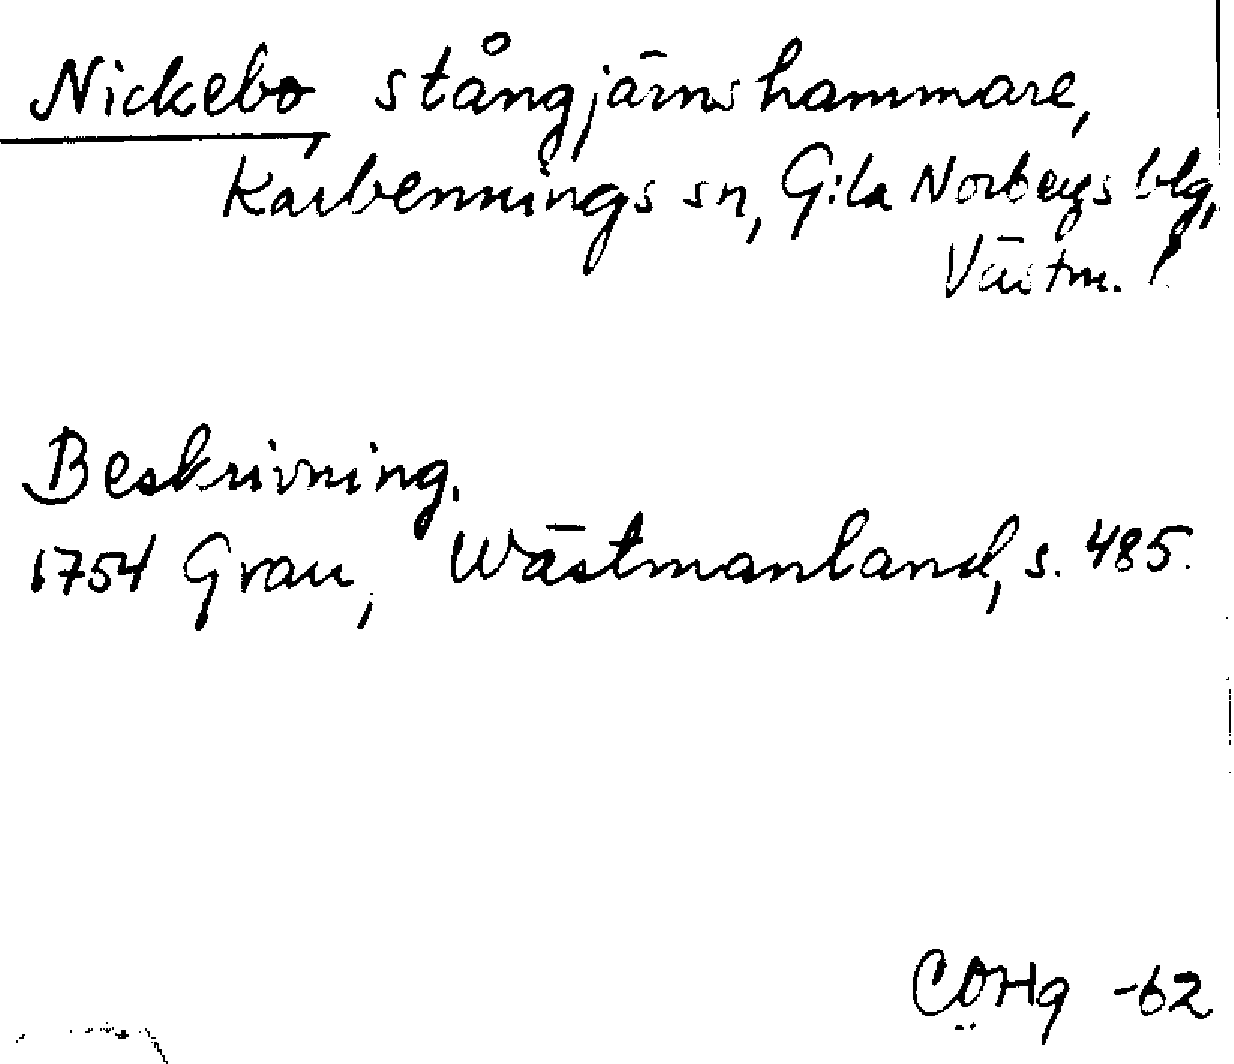 Nickebo, stångjärnshammare,
Karbennings sn, G:la Norbergs blg,
Västm. l.
Beskrivning.
1754 Grau, Wästmanland, s. 485.
CÖHg -62